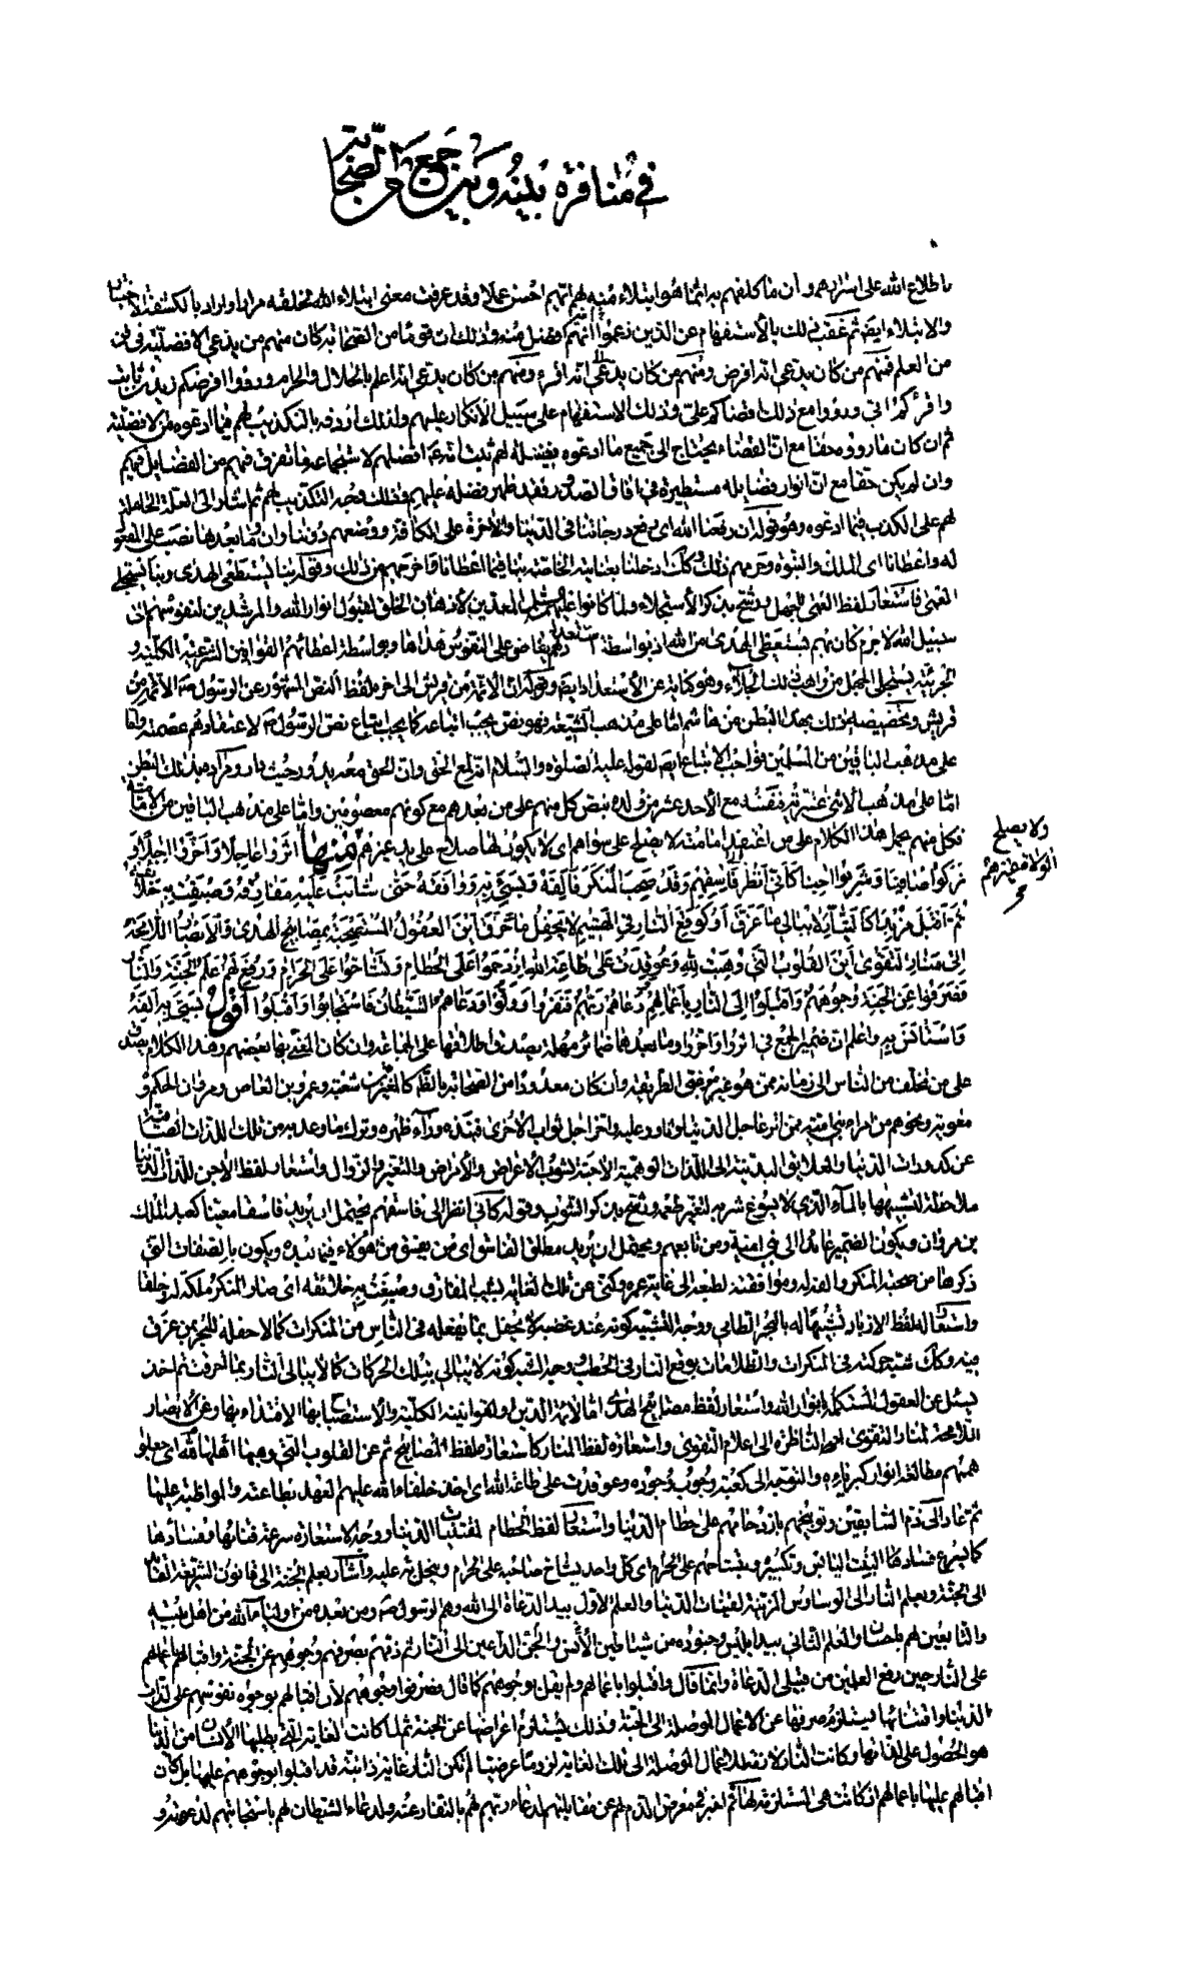 في منافرة بينه وبين جمع من الصحابة
باطلاع الله على اسرارهم وان ما كلفهم به انما هو ابتلاء منه لهم ايهم احسن عملا وقد عرفت معنى ابتلاء الله لخلقه مرارا واراد بالكشف الاختبار
والابتلاء ايضا ثم عقب ذلك بالاستفهام عن الذين زعموا انهم افضل منه وذلك ان قوما من الصحابة كان منهم من يدعي الافضلية في فن
من العلم فمنهم من كان يدعي انه افرض ومنهم من كان يدعي انه اقرء ومنهم من كان يدعي انه اعلم بالحلال والحرام ورووا افرضكم زيد بن ثابت
واقرؤكم ابي ورووا مع ذلك اقضاكم علي وذلك الاستفهام على سبيل الانكار عليهم ولذلك اردفه بالتكذيب لهم فيما ادعوه من الافضلية
ثم ان كان ما رووه حقا مع ان القضاء يحتاج الى جميع ما ادعوه فضيلة لهم ثبت انه افضلهم لاستجماعه ما تفرق فيهم من الفضايل
وان لم يكن حقا مع ان انوار فضايله مستطيرة في افاق الصدور فقد ظهر فضله عليهم وذلك وجه التكذيب لهم ثم اشار الى العلة الحاملة
لهم على الكذب فيما ادعوه وهو قوله ان رفعنا الله اي رفع درجاتنا في الدنيا والاخرة على الكافة ووضعهم دوننا وان وما بعدها نصب على المفعول
له واعطانا اي الملك والنبوة وحرمهم ذلك وكذلك ادخلنا بعنايته الخاصة بنا فيما اعطانا واخرجهم من ذلك وقوله بنا يستعطى الهدى وبنا يستجلى
العمى فاستعار لفظ العمى للجهل ورشح بذكر الاستجلاء ولما كانوا عليهم السلام المعدين لاذهان الخلق لقبول انوار الله والمرشدين لنفوسهم الى
سبيل الله لا جرم كان بهم يستعطى الهدى من الله اذ بواسطة استعدادهم يفاض على النفوس هداها وبواسطة اعطائهم القوانين الشرعية الكلية و
الجزئية يستجلى الجهل من واهب ذلك الجلاء وهو كناية عن الاستعداد ايضا وقوله ان الائمة من قريش الى اخره لفظ النص المشهور عن الرسول ص الائمة من
قريش وتخصيصه ذلك بهذا البطن من هاشم اما على مذهب الشيعة فهو نص يجب اتباعه كما يجب اتباع نص الرسول ص لاعتقادهم عصمته واما
على مذهب الباقين من المسلمين فواجب الاتباع ايضا لقوله عليه الصلوة والسلام انه لمع الحق وان الحق معه يدور حيث دار ومراده بذلك البطن
اما على مذهب الاثنى عشرية فنفسه مع الاحد عشر من ولده بنص كل منهم على من بعده مع كونهم معصومين واما على مذهب الباقين من الامامية
فكل منهم يحمل هذا الكلام على من اعتقد امامته لا يصلح على سواهم اي لا يكون لها صلاح على يد غيرهم منها اثروا عاجلا واخروا اجلا و
ولا يصلح
الولاة من غيرهم
تركوا صافيا وشربوا اجنا كاني انظر الى فاسقهم وقد صحب المنكر فالفه وبسئ به ووافقه حتى شابت عليه مفارقه وصبغت به خلائقه
ثم اقبل مزبدا كالتيار لا يبالي ما غرق او كوقع النار في الهشيم لا يحفل ما حرق اين العقول المستصبحة بمصابيح الهدى والابصار اللامحة
الى منار التقوى اين القلوب التي وهبت لله وعوقدت على طاعة الله ازدحموا على الحطام وتشاحوا على الحرام ورفع لهم علم الجنة والنار
فصرفوا عن الجنة وجوههم واقبلوا الى النار باعمالهم دعاهم ربهم فنفروا وولوا ودعاهم الشيطان فاستجابوا واقبلوا اقول بسئ به الفه
واستانس به واعلم ان ضمير الجمع في اثروا واخروا وما بعدها ضمائر مهملة يصدق اطلاقها على الجماعة وان كان المعني بها بعضهم وهذا الكلام يصدق
على من تخلف من الناس الى زمانه ممن هو غير مرضي الطريقة وان كان معدودا من الصحابة بالظاهر كالمغيرة بن شعبة وعمرو بن العاص ومروان الحكم و
معوية ونحوهم من امراء بني امية ممن اثر عاجل الدنيا وثاور عليه واخر اجل ثواب الاخرى فنبذه وراء ظهره وترك ما وعد به من تلك اللذات الصافية
عن كدورات الدنيا والعلايق البدنية الى اللذات الوهمية الاجنة لشوب الاعراض والامراض والتغير والزوال واستعار لفظ الاجن للذات الدنيا
ملاحظة لتشبيهها بالماء الذي لا يسوغ شربه لتغير طعمه ورشح بذكر الشرب وقوله كاني انظر الى فاسقهم يحتمل ان يريد فاسقا معينا كعبد الملك
بن مروان ويكون الضمير عائدا الى بني امية ومن تابعهم ويحتمل ان يريد مطلق الفاسق اي من يفسق من هؤلاء فيما بعده ويكون بالصفات التي
ذكرها من صحبة المنكر والفه له وموافقته لطبعه الى غاية عمره وكنى عن تلك الغاية بشيب المفارق وصبغت به خلائقه اي صار المنكر ملكة له وخلقا
واستعار لفظ الازباد تشبيها له بالبحر الطامي ووجه التشبيه كونه عند غضبه لا يحفل بما يفعله في الناس من المنكرات كما لا يحفل البحر بمن غرق
فيه وكذلك شبه حركته في المنكرات والظلامات بوقع النار في الحطب ووجه الشبه كونه لا يبالي بتلك الحركات كما لا يبالي النار بما احرقت ثم اخذ
يسئل عن العقول المستكملة بانوار الله واستعار لفظ مصابيح الهدى اما لائمة الدين او لقوانينه الكلية والاستصباح بها الاقتداء بها وعن الابصار
اللامحة لمنار التقوى اي الناظرة الى اعلام التقوى واستعارة لفظ المنار كاستعارة لفظ المصابيح ثم عن القلوب التي وهبها اهلها لله اي جعلوا
همهم مطالعة انوار كبريائه والتوجه الى كعبة وجوب وجوده وعوقدت على طاعة الله اي اخذ خلفاء الله عليهم العهد بطاعته والمواظبة عليها
ثم عاد الى ذم السابقين وتوبيخهم بازدحامهم على حطام الدنيا واستعار لفظ الحطام لمقتنيات الدنيا ووجه الاستعارة سرعة فنائها وفسادها
كما يسرع فساد النبت اليابس وتكسيره وبتشاحهم على الحرام اي كل واحد يشاح صاحبه على الحرام ويبخل به عليه واشار بعلم الجنة الى قانون الشريعة القائد
الى الجنة وبعلم النار الى الوساوس المزينة لقينات الدنيا والعلم الاول بيد الدعاة الى الله وهم الرسول ص ومن بعده من اولياء الله من اهل بيته
والتابعين لهم باحسان والعلم الثاني بيد ابليس وجنوده من شياطين الانس والجن الداعين الى النار ثم ذمهم بصرفهم وجوههم عن الجنة واقبالهم باعمالهم
على النار حين رفع العلمين من قبلي الدعاة وانما قال واقبلوا باعمالهم ولم يقل بوجوههم كما قال فصرفوا وجوههم لان اقبالهم بوجوه نفوسهم على لذات
الدنيا واقتنائها يستلزم صرفها عن الاعمال الموصلة الى الجنة وذلك يستلزم اعراضها عن الجنة ثم لما كانت الغاية التي يطلبها الانسان من الدنيا
هو الحصول على لذاتها وكانت النار لازمة للاعمال الموصلة الى تلك الغاية لزوما عرضيا لم تكن النار غاية ذاتية قد اقبلوا بوجوههم عليها بل كان
اقبالهم عليها باعمالهم اذ كانت هي المستلزمة لها ثم اخبر في معرض الذم لهم عن مقابلتهم لدعاء ربهم لهم بالنفار عنه ولدعاء الشيطان لهم باستجابتهم لدعوته و